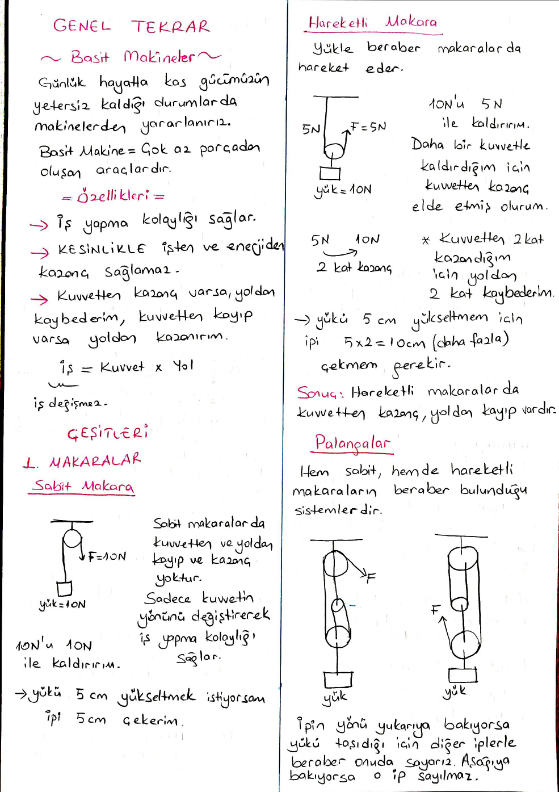 GENEL TEKRAR
~ Basit Makineler ~
Günlük hayatta kas gücümüzün
yetersiz kaldığı durumlarda
makinelerden yararlanırız.
Basit Makine = Çok az parçadan
oluşan araçlardır.
= Özellikleri =
→ İş yapma kolaylığı sağlar.
→ KESİNLİKLE işten ve enerjiden
kazanç sağlamaz.
→ Kuvvetten kazanç varsa, yoldan
kaybederim, kuvvetten kayıp
varsa yoldan kazanırım.
iş = Kuvvet x Yol
iş değişmez.
ÇEŞİTLERİ
1. MAKARALAR
Sabit Makara
Sabit makaralarda
kuvvetten ve yoldan
kayıp ve kazanç
yoktur.
Sadece kuvvetin
yönünü değiştirerek
iş yapma kolaylığı
sağlar.
F=10N
yük=10N
10N'u 10N
ile kaldırırım.
→ yükü 5 cm yükseltmek istiyorsam
ipi 5cm çekerim.
Hareketli Makara
Yükle beraber makaralarda
hareket eder.
5N
F=5N
yük=10N
10N'u 5N
ile kaldırırım.
Daha bir kuvvetle
kaldırdığım için
kuvvetten kazanç
elde etmiş olurum.
5N 10N
2 kat kazanç
* Kuvvetten 2 kat
kazandığım
için yoldan
2 kat kaybederim.
→ yükü 5 cm yükseltmem için
ipi 5x2=10cm (daha fazla)
çekmem gerekir.
Sonuç: Hareketli makaralarda
kuvvetten kazanç, yoldan kayıp vardır.
Palangalar
Hem sabit, hemde hareketli
makaraların beraber bulunduğu
sistemlerdir.
F
yük
F
yük
İpin yönü yukarıya bakıyorsa
yükü taşıdığı için diğer iplerle
beraber onuda sayarız. Aşağıya
bakıyorsa o ip sayılmaz.